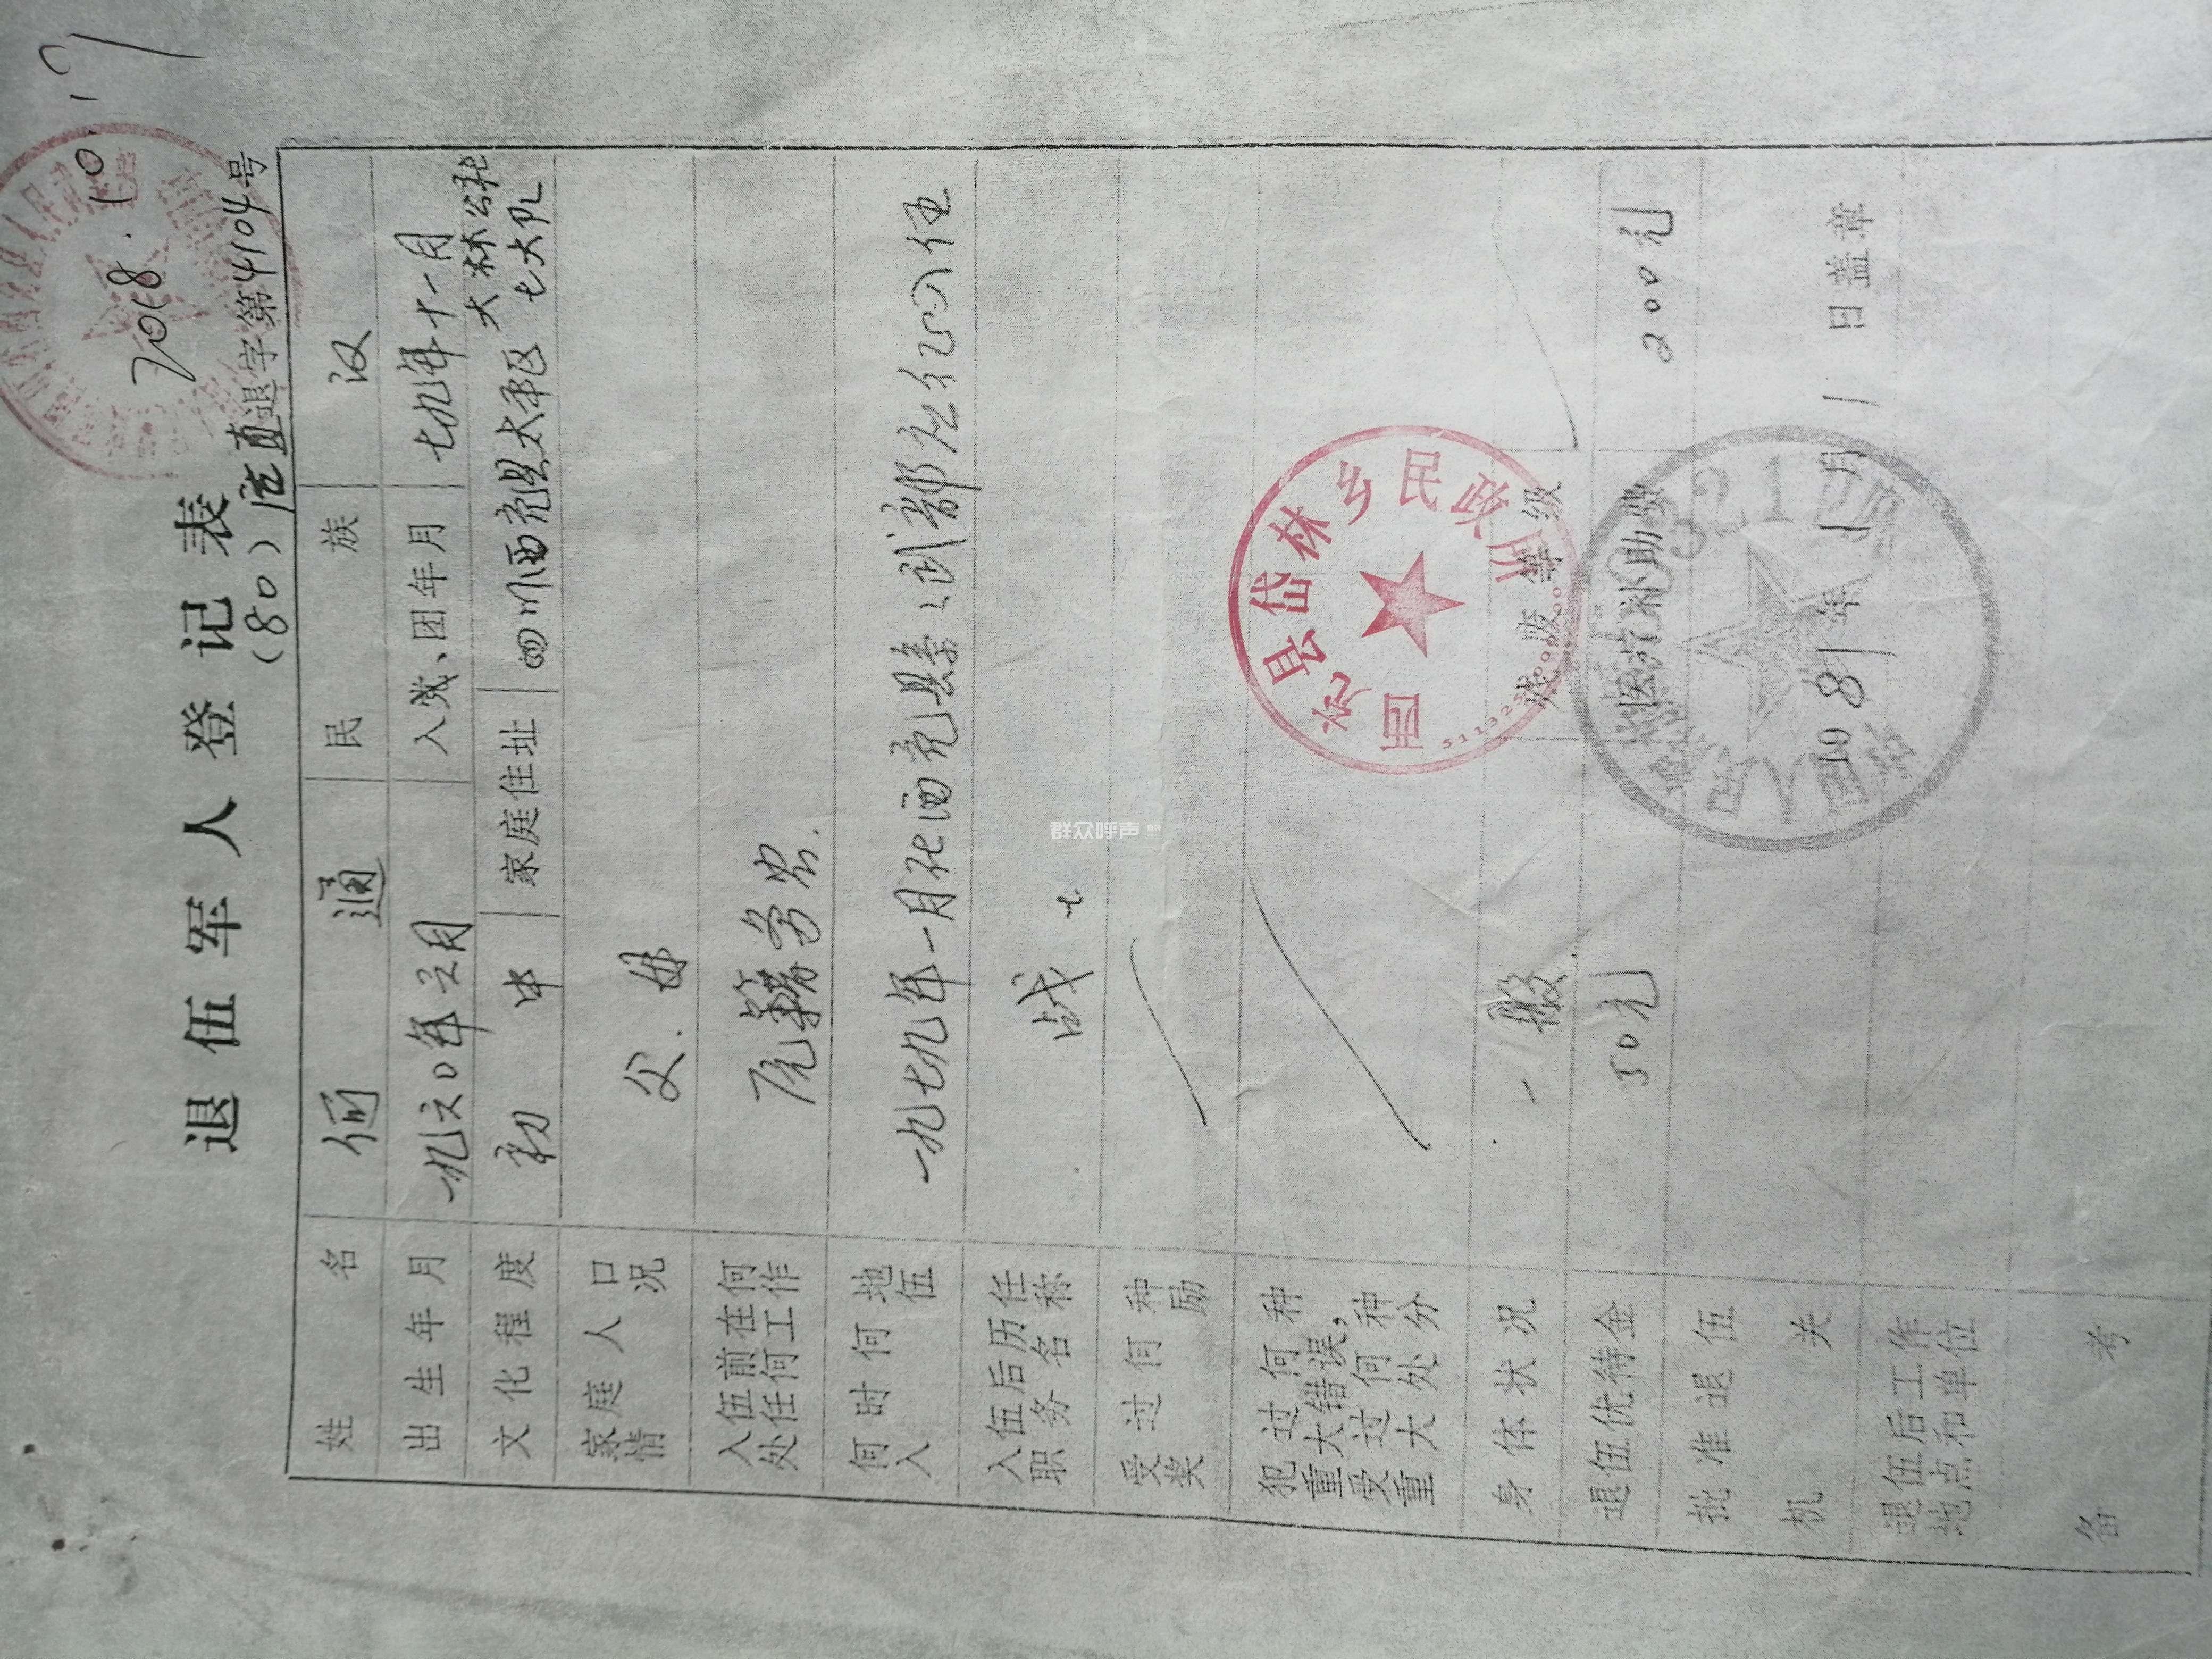 2018.10.17
退伍军人登记表
(80)后直退字第4104号
姓名 何通 民族 汉
出生年月 一九六〇年三月 入党、团年月 七九年十一月
文化程度 初中 家庭住址 四川西充县太平区 大林公社
七大队
家庭人口
情况
父.母
入伍前在何
处任何工作
原籍务农.
何时何地
入伍
一九七九年一月在西充县
入伍后历任
职务名称
战士
受过何种
奖励
犯过何种
重大错误,
受过何种
重大处分
身体状况 一般. 残废等级
退伍优待金 50元 医疗补助费 200元
批准退伍
机关
1981年1月1日盖章
退伍后工作
地点和单位
备考
西充县岱林乡民政
群众呼声